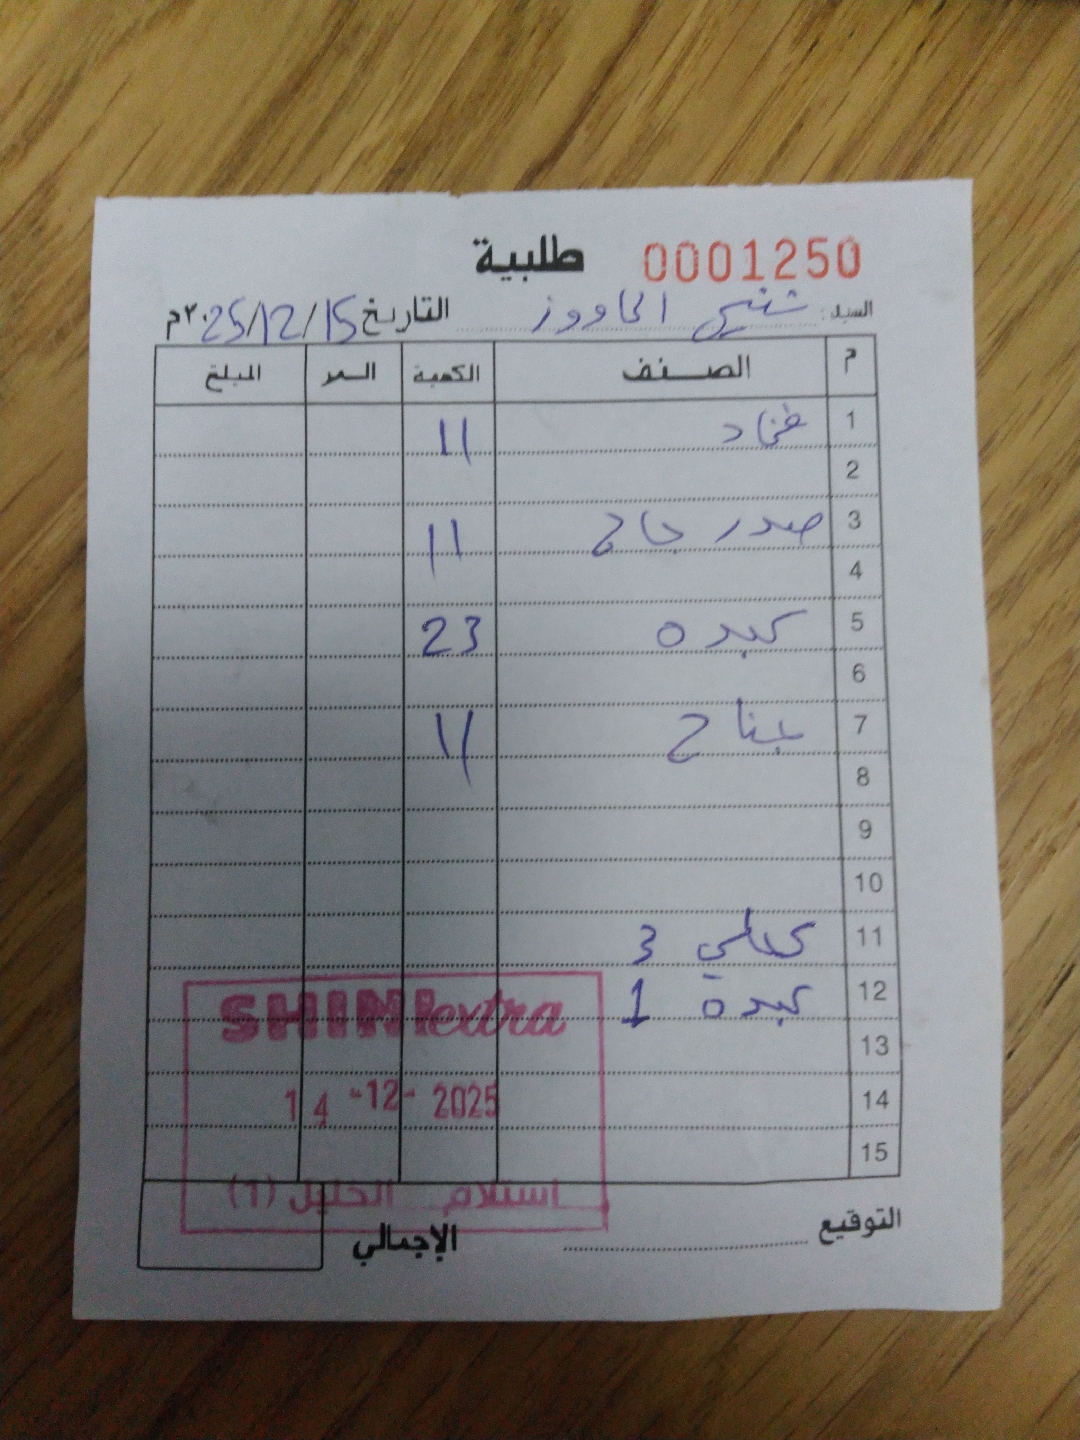 طلبية 0001250
السيد: شني الحاووز التاريخ 25/12/15 ٢٠م
م الصنف الكمية السعر المبلغ
1 فخاد 11
2
3 صدر جاج 11
4
5 كبده 23
6
7 جناح 11
8
9
10
11 3
12 كبدة 1
13
14
15
SHINI extra
14 -12- 2025
استلام الخليل (1)
التوقيع الإجمالي